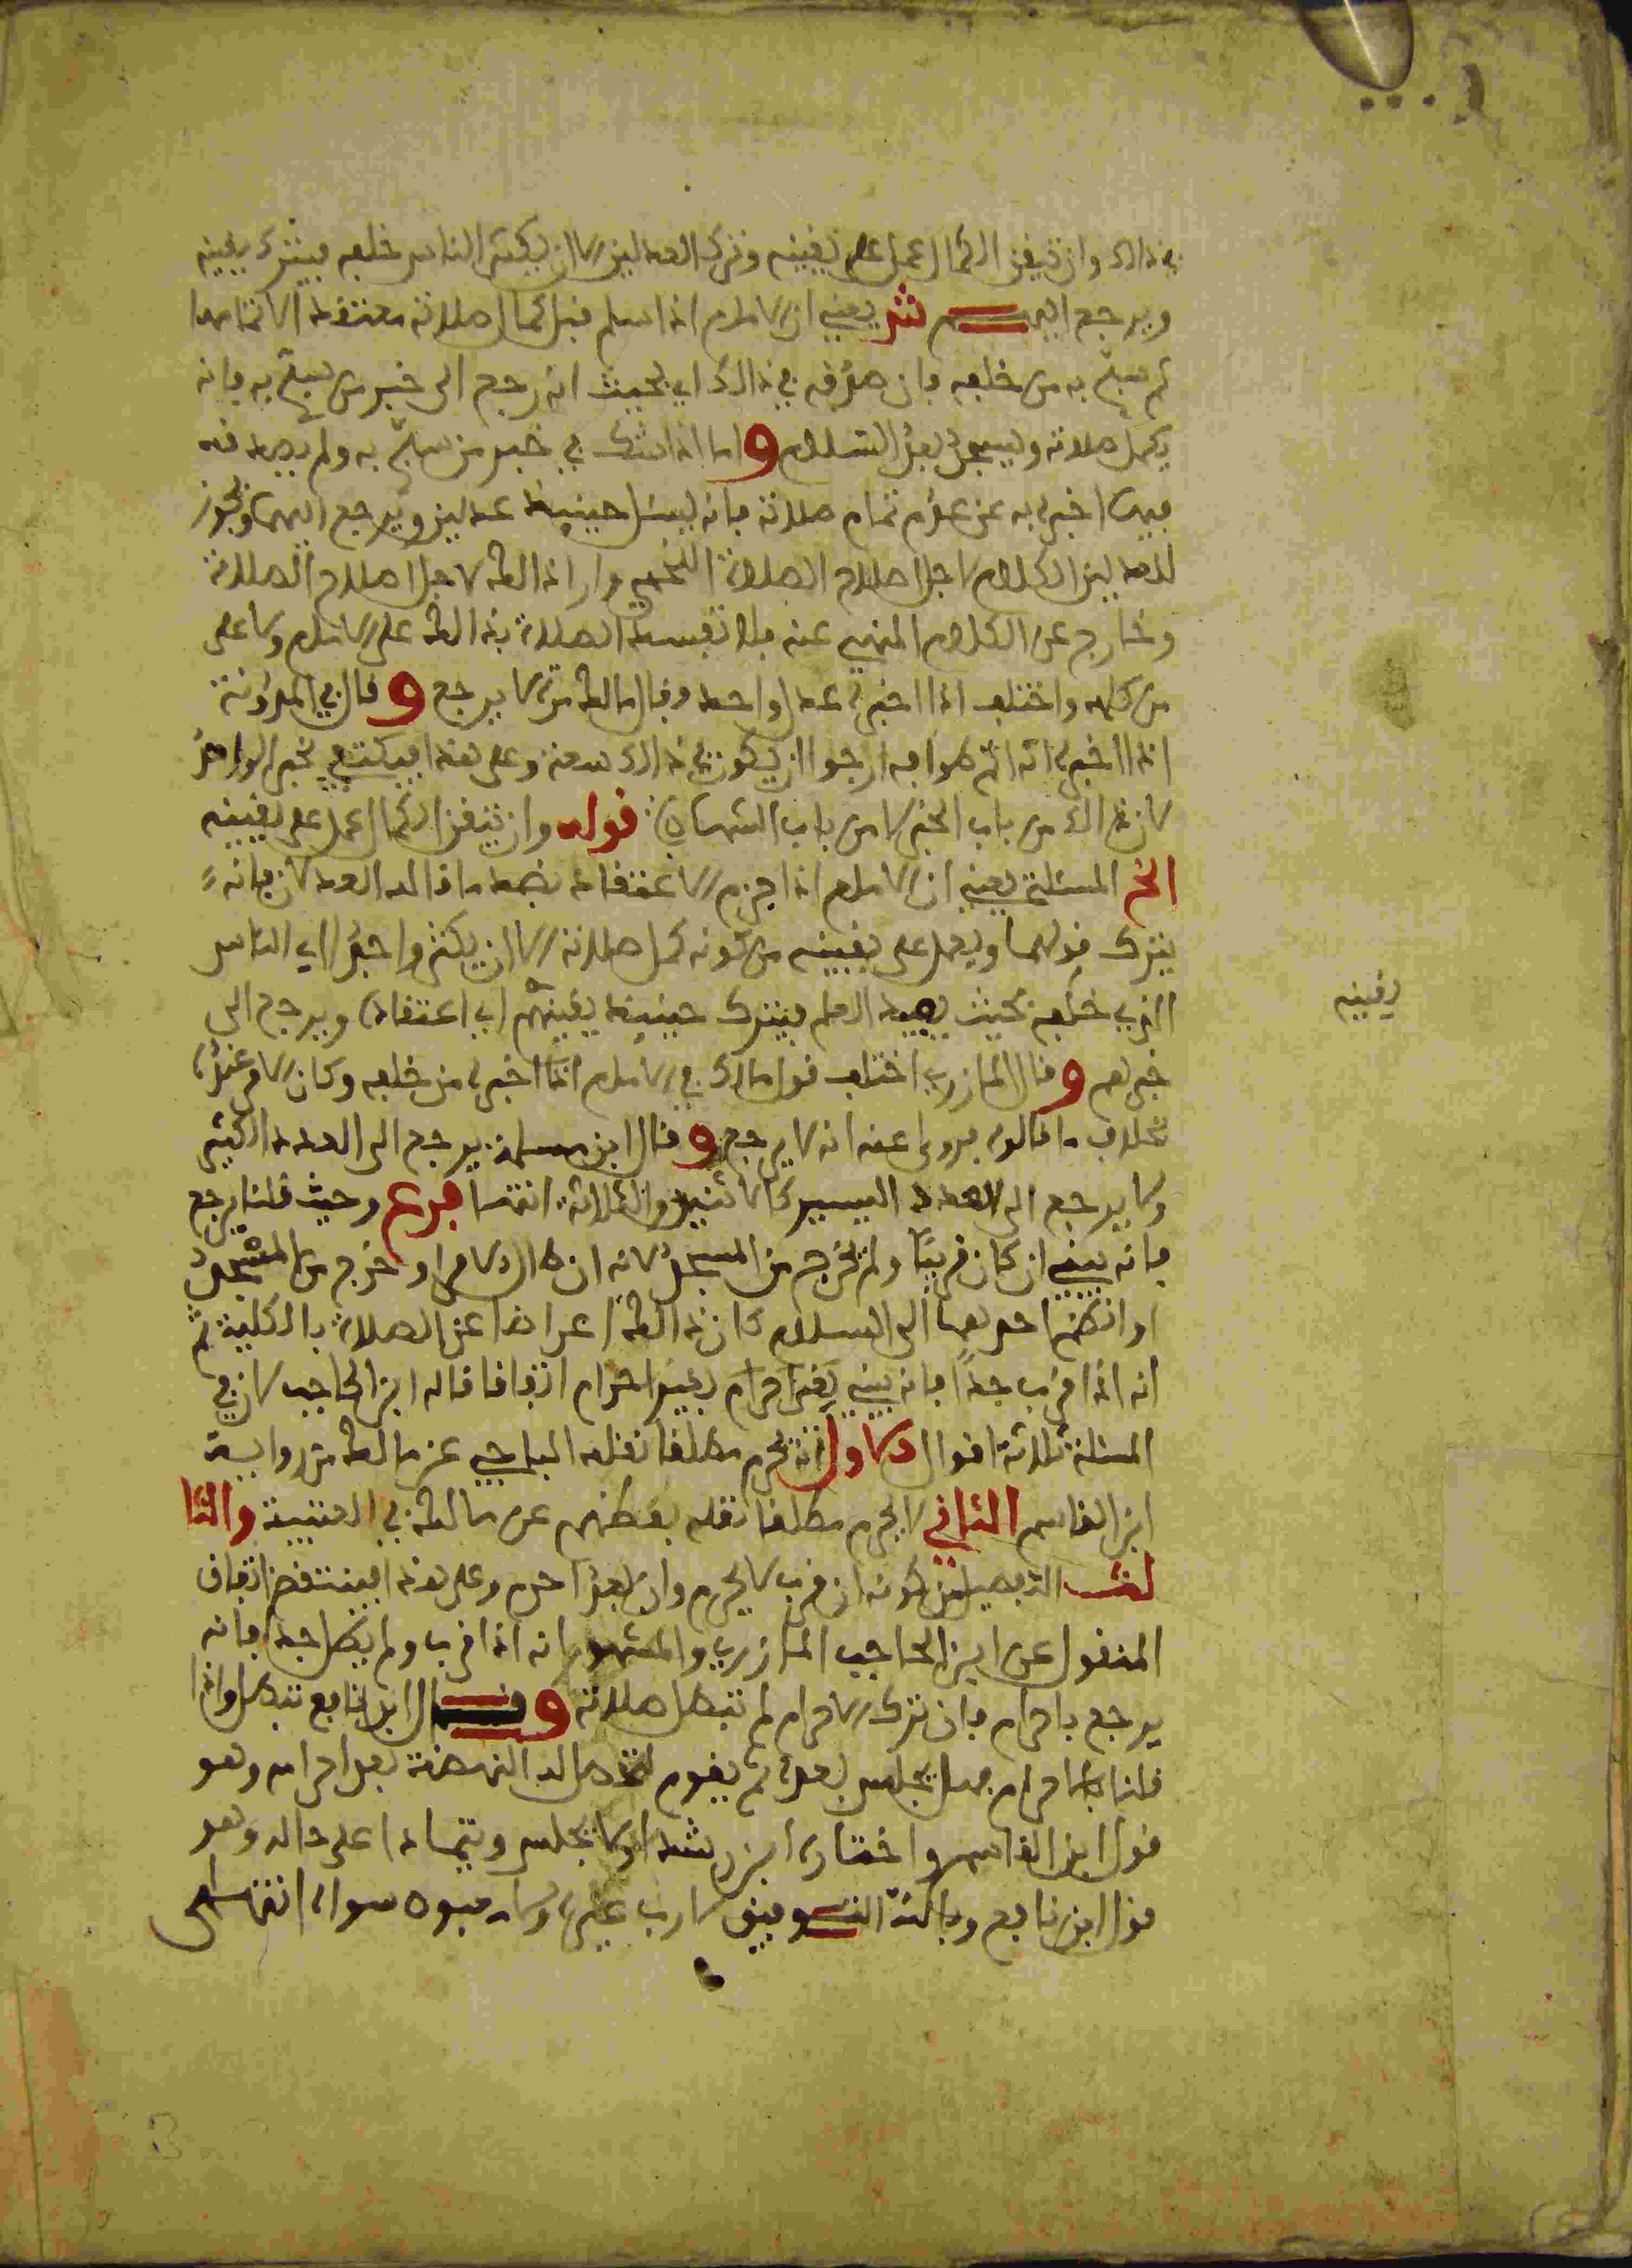 في ذلك وان تيقن الكمال عمل على يقينه وترك العدلين الا ان يكثر الناس خلفه فيترك يقينه
ويرجع اليهم ش يعني ان الامام اذا سلم قبل كمال صلاته معتقدا لاتمامها
ثم سبح به من خلفه فان صدقه في ذلك اي بحيث انه رجع الى خبر من سبح به فانه
يكمل صلاته ويسجد بعد السلام واما اذا شك في خبر من سبح به ولم يصدقه
فيما اخبره به عن عدم تمام صلاته فانه يسئل حينيذ عدلين ويرجع اليهما ويجوز
للعدلين الكلام لاجل اصلاح الصلاة اللخمي واراد ذالك لاجل اصلاح الصلاة
وخارج عن الكلام المنهي عنه فلا تفسد الصلاة بذالك على الامام ولا على
من كلمه واختلف اذا اخبره عدل واحد فقال مالك مرة لا يرجع وقال في المدونة
اذا اخبره انه اتم طوافه ارجوا ان يكون في ذلك سعة وعلى هذا يكتفي بخبر الواحد
لان ذالك من باب الخبر لا من باب الشهادة قوله وان تيقن الكمال عمل على يقينه
الخ المسئلة يعني ان الامام اذا جزم الاعتقاد بضد ما قاله العدلان فانه
يترك قولهما ويعمل على يقينه من كونه كمل صلاته الا ان يكثروا جدا اي الناس
الذي خلفه بحيث يفيد العلم فيترك حينيذ يقينهم اي اعتقاده ويرجع الى
يقينه
خبرهم وقال المازري اختلف قول مالك في الامام اذا اخبره من خلفه وكان الامر عنده
بخلاف ما قالوه فروي عنه انه لا يرجع وقال ابن مسلمة يرجع الى العدد الكثير
ولا يرجع الى العدد اليسير كالاثنين والثلاثة انتهى فرع وحيث قلنا يرجع
فانه يبني ان كان قريبا ولم يخرج من المسجد لانه ان طال الامر او خرج من المسجد
او انضم احدهما الى السلام كان ذالك اعراضا عن الصلاة بالكلية ثم
انه اذا قرب جدا فانه يبني بغير احرام اتفاقا قاله ابن الحاجب لان في
المسئلة ثلاثة اقوال الاول انه يحرم مطلقا نقله الباجي عن مالك من رواية
ابن القاسم الثاني لا يحرم مطلقا نقله بعضهم عن مالك في العتبية والثا
لث التفصيل من كونه ان قرب لا يحرم وان بعد احرم وعلى هذا فينتقض اتفاق
المنقول عن ابن الحاجب المازري والمشهور انه اذا قرب ولم يطل جدا فانه
يرجع باحرام فان ترك الاحرام لم تبطل صلاته وقال ابن نافع تبطل واذا
قلنا باحرام فهل يجلس بعده ثم يقوم لتحصل له النهضة بعد احرامه وهو
قول ابن القاسم واختاره ابن رشد او لا يجلس ويتمادا على حاله وهو
قول ابن نافع وبالله التوفيق لا رب غيره ولا معبود سواه انتهى